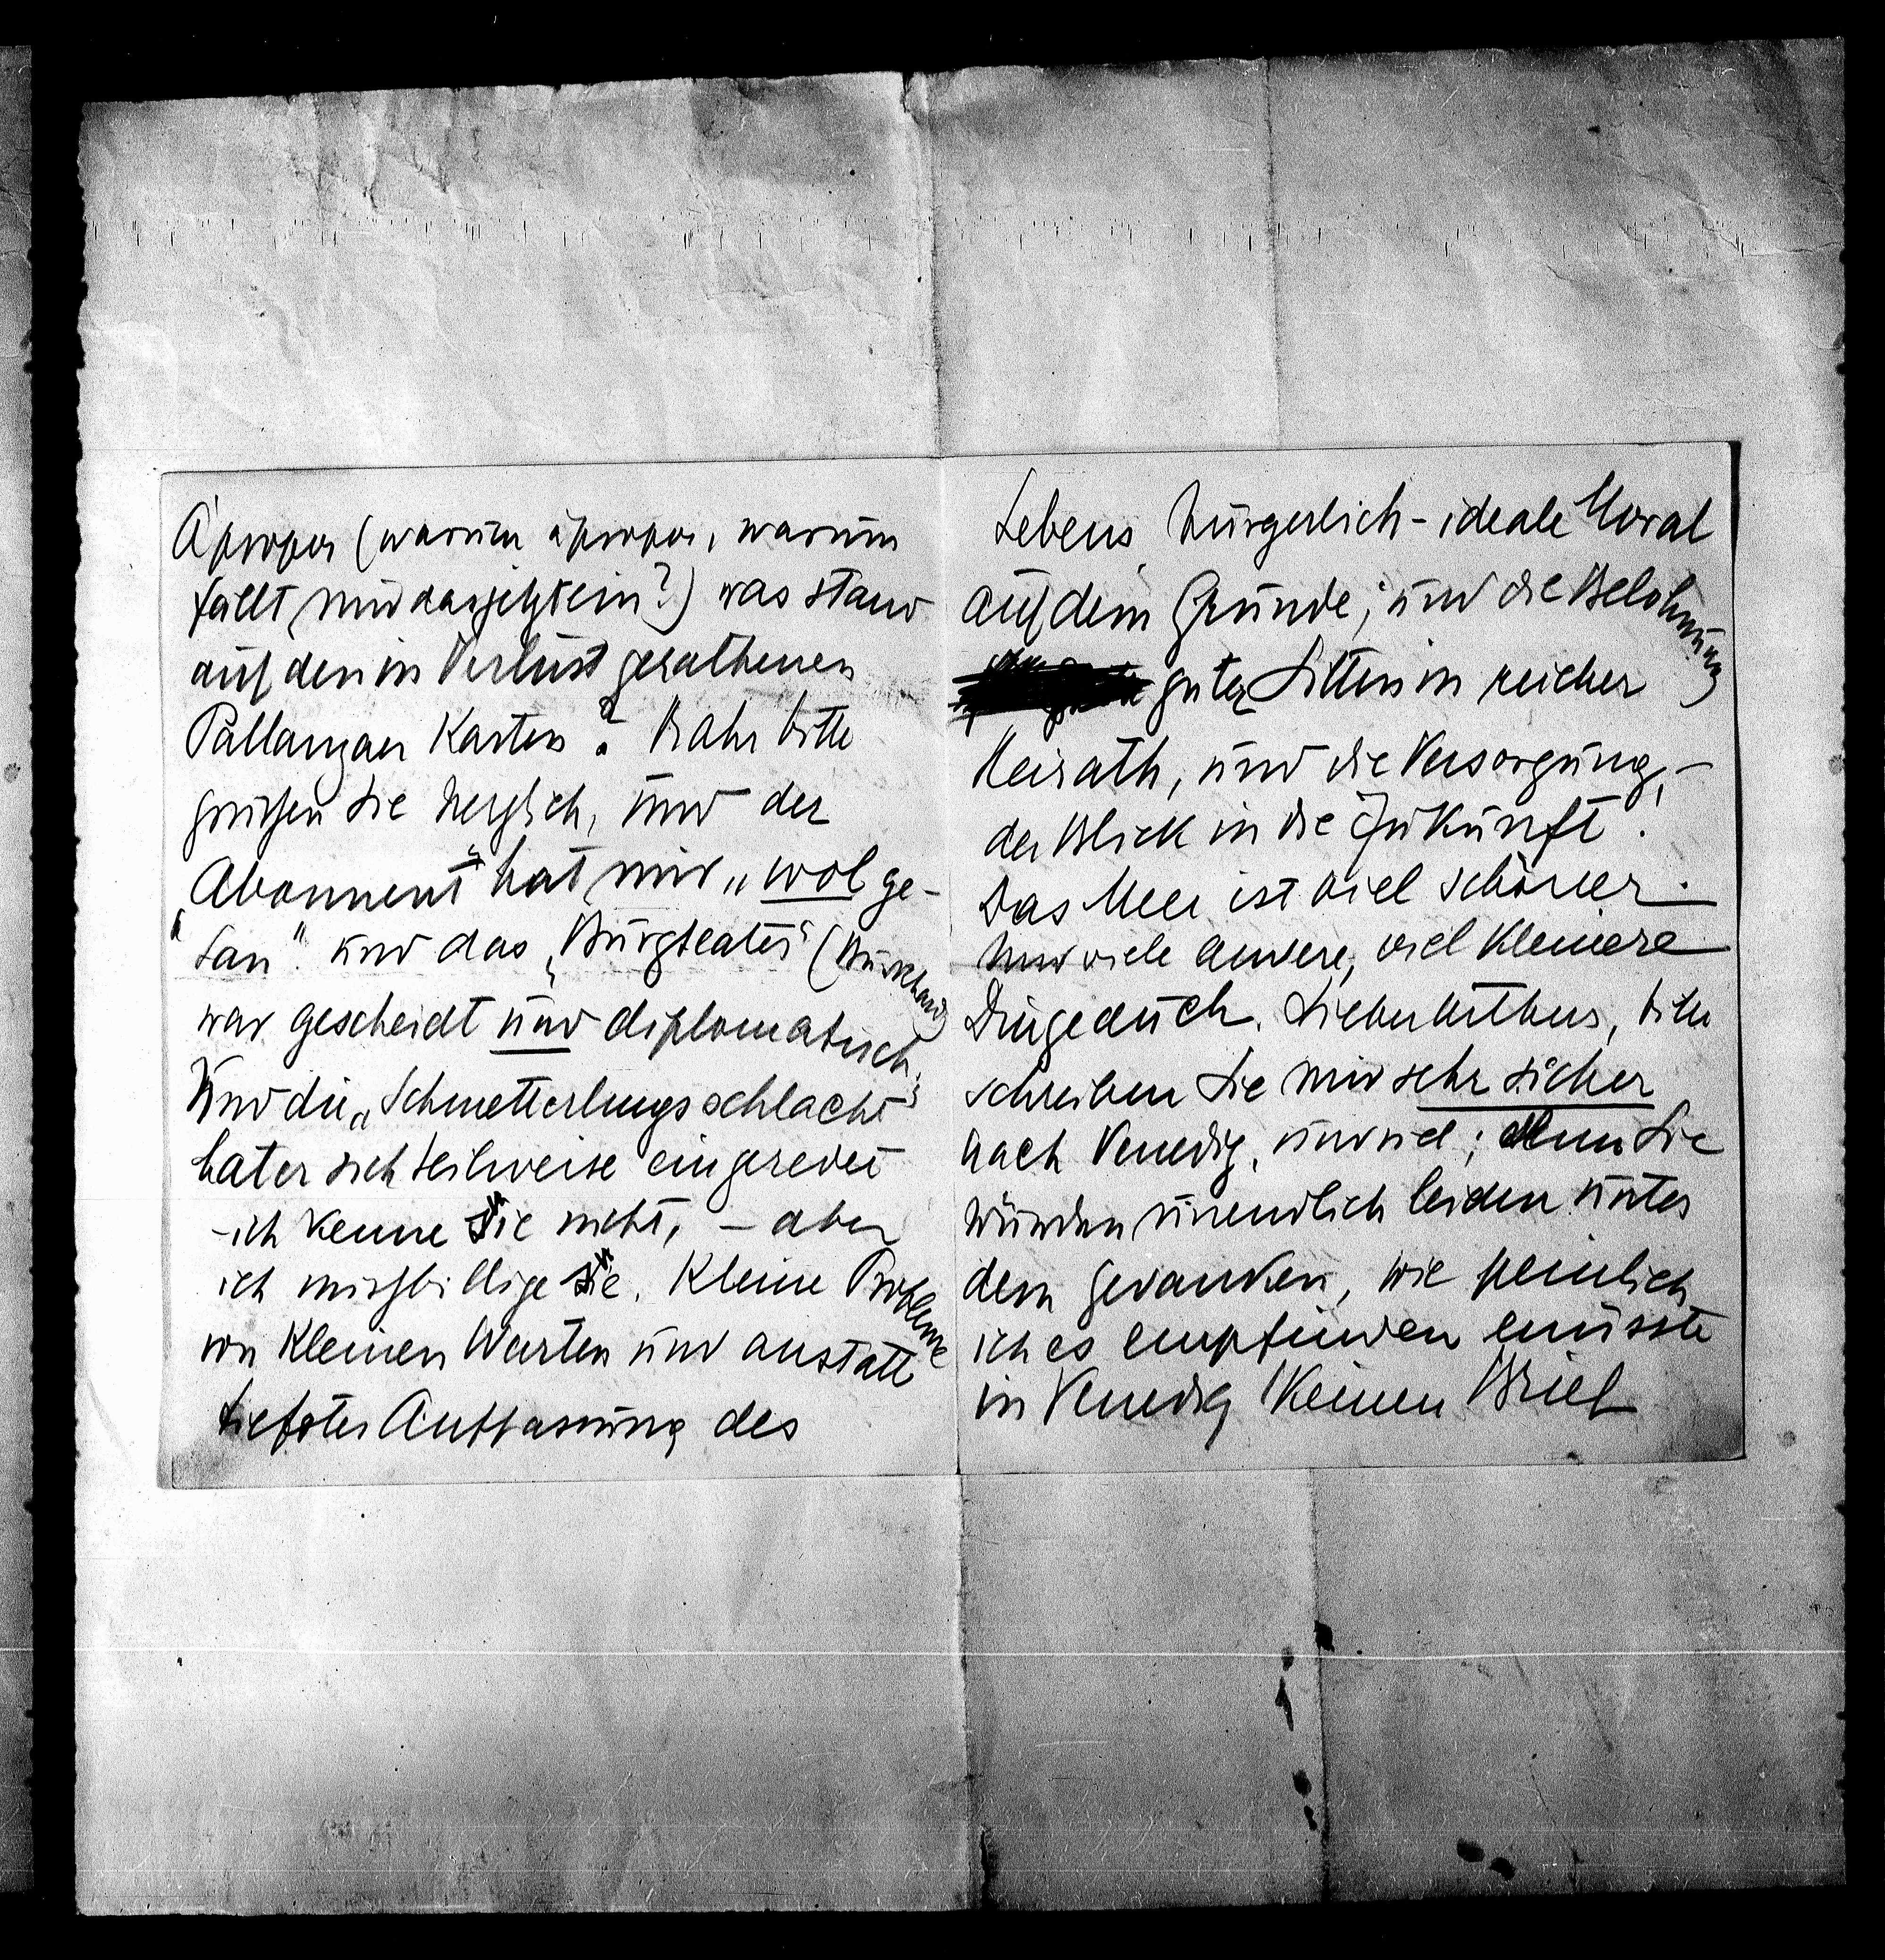 Apropos (warum àpropos, warum
fällt mir das jetzt ein?) was stand
auf den in Verlust gerathenen
Pallanzaer Karten? Bahr bitte
grüßen Sie herzlich, und der
Abonnent" hat mir „wol ge-
tan". und das „Burgteater" (Burckhard)
war gescheidt und diplomatisch.
Und die „Schmetterlingsschlacht"
hat er sich teilweise eingeredet
– ich kenne sie nicht, – aber
ich mißbillige sie. Kleine Probleme
von kleinen Warten und anstatt
tiefster Auffassung des
Lebens bürgerlich-ideale Moral
auf dem Grunde; und die Belohnung
guter Sitten in reicher
Heirath, und die Versorgung, –
der Blick in die Zukunft.
Das Meer ist viel schöner.
Und viele andere, viel kleinere
Dinge auch. Lieber Arthur, bitte
schreiben Sie mir sehr sicher
nach Venedig, und viel; denn Sie
würden unendlich leiden unter
dem Gedanken, wie peinlich
ich es empfinden müsste
in Venedig keinen Brief